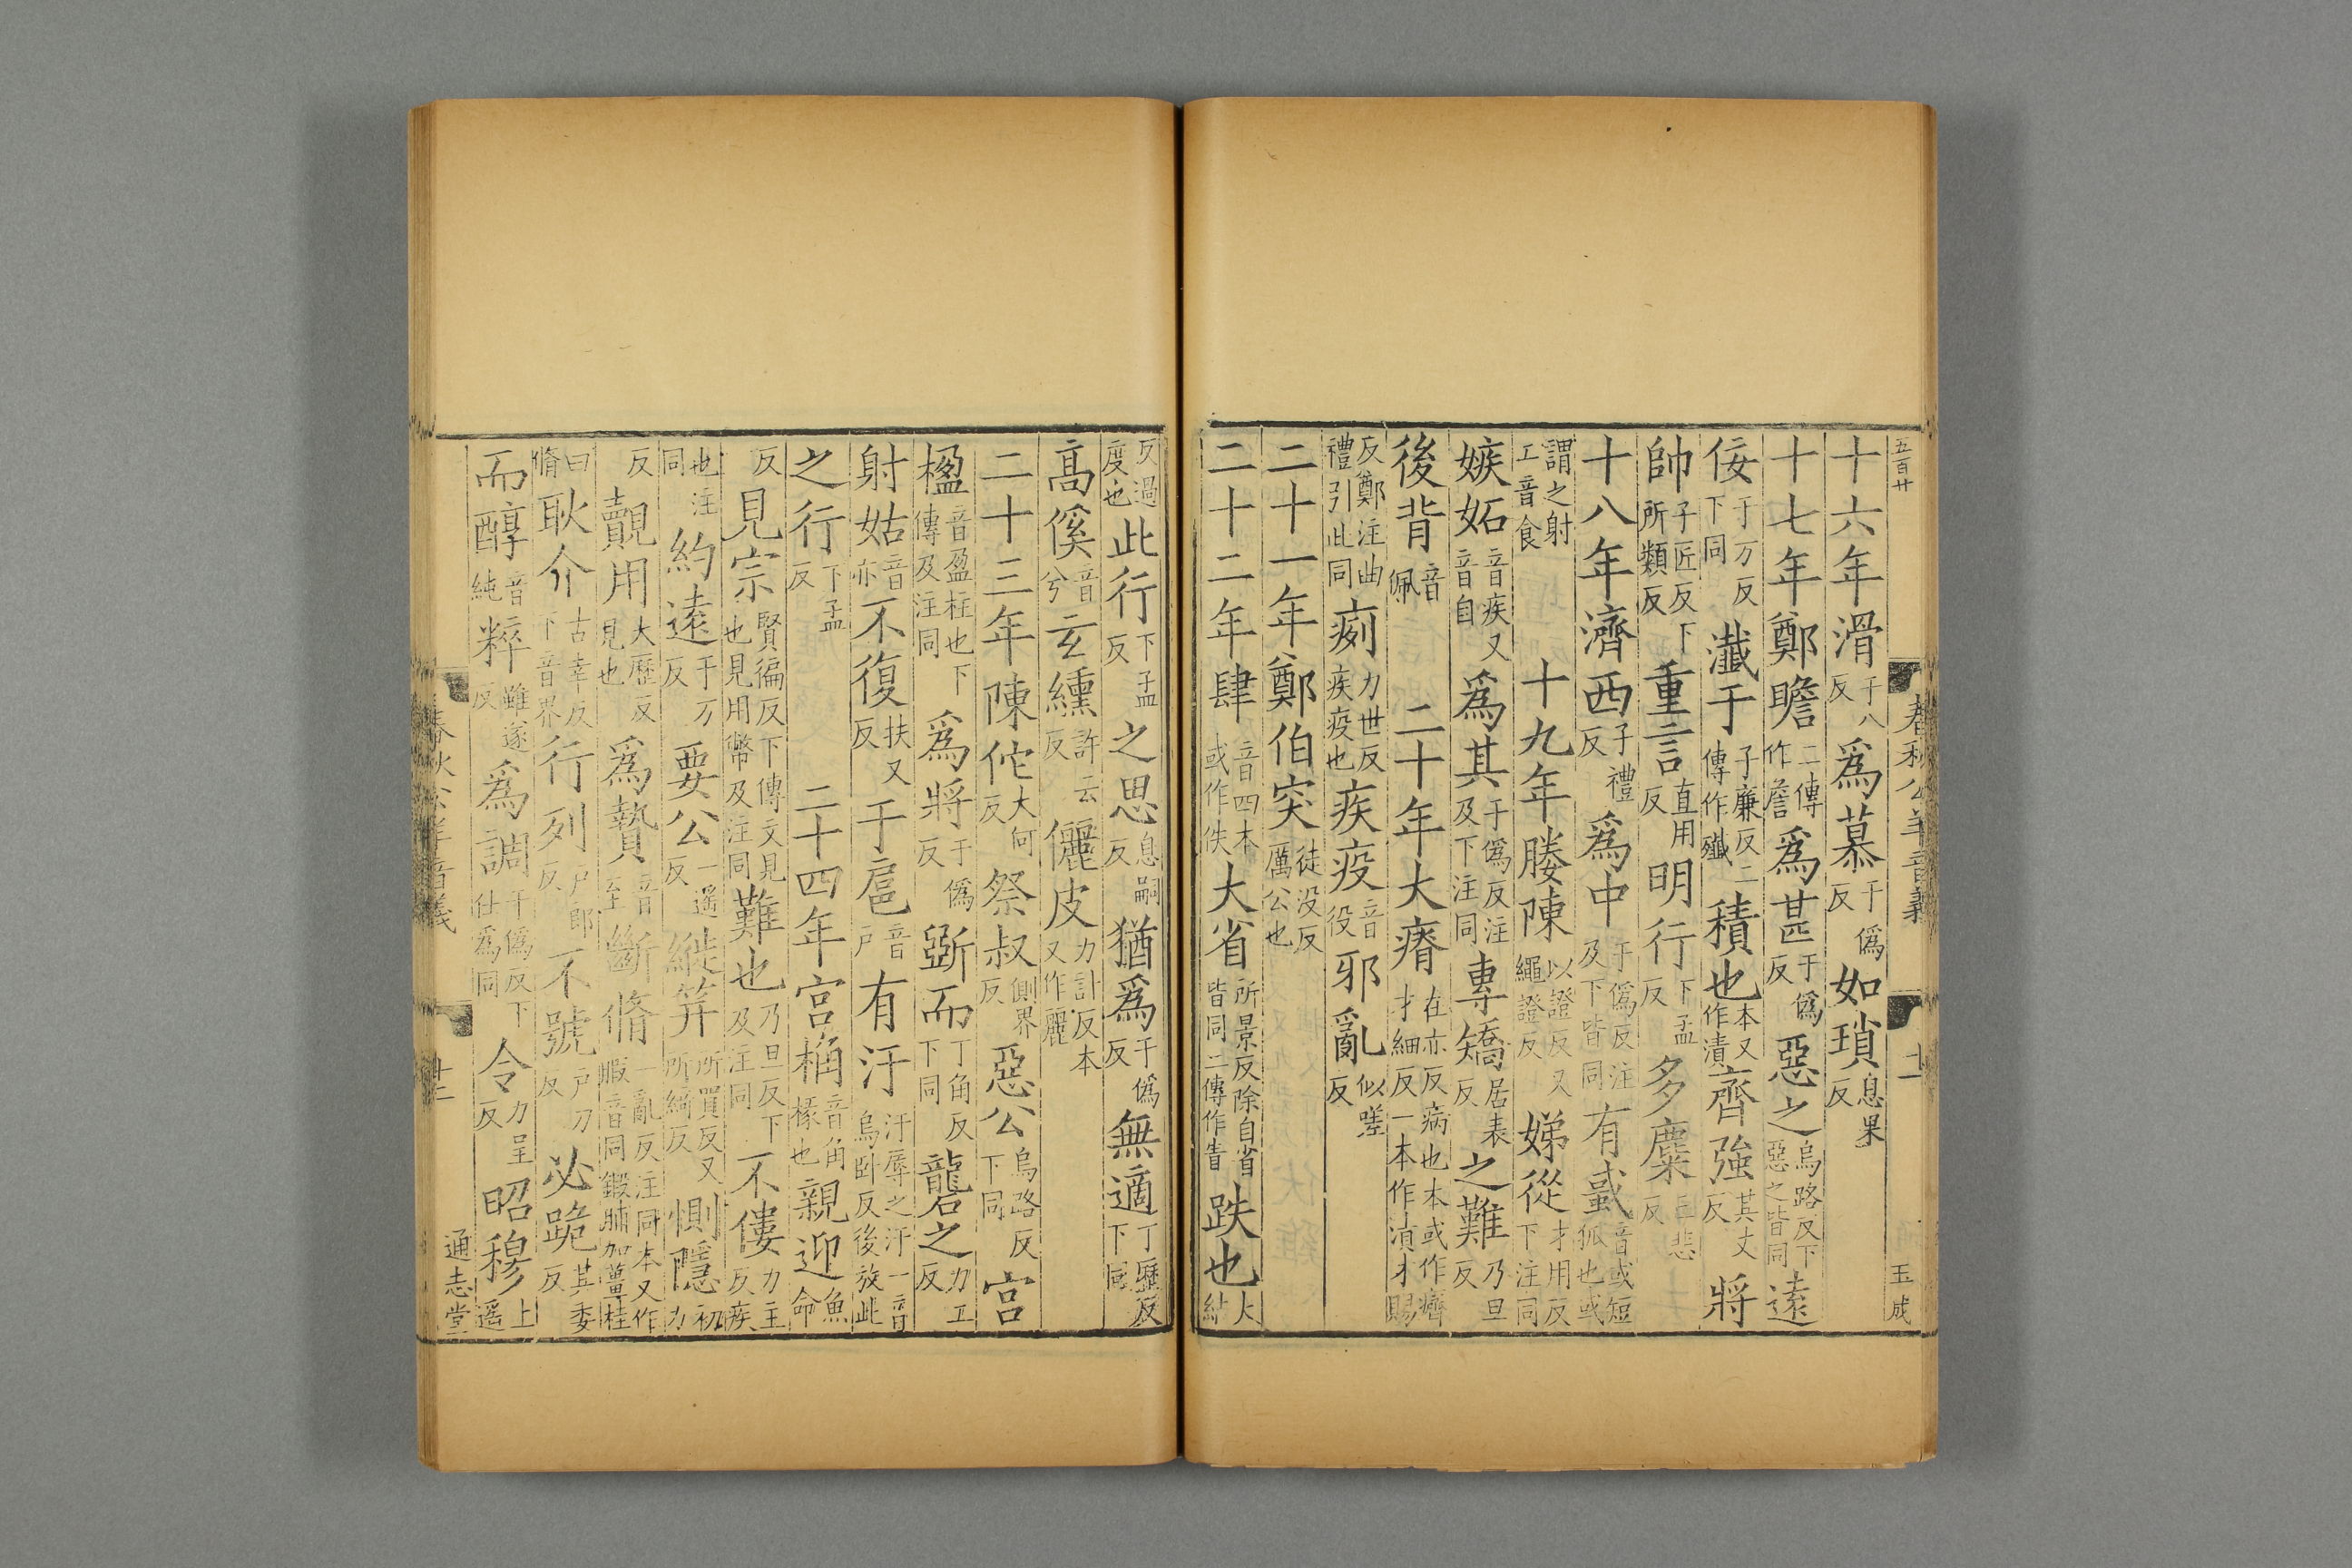 五百廿
春秋公羊音義
十一
王成
十六年滑于八反爲慕于僞反如瑣息果反
十七年鄭瞻二傳作詹爲甚于僞反惡之烏路反下惡之皆同遠
佞于万反下同瀸于子廉反二傳作殲積也本又作漬齊強其丈反將
帥子匠反下所類反重言直用反明行下孟反多麋亡悲反
十八年濟西子禮反爲中于僞反注及下皆同有蜮音或短狐也或
謂之射工音食十九年媵陳以證反又繩證反娣從才用反下注同
嫉妬音疾又音自爲其于僞反注及下注同專矯居表反之難乃旦反
後背音佩二十年大瘠在亦反病也本或作𤻊才細反一本作漬才賜
反鄭注曲禮引此同痢力世反疾疫也疾疫音役邪亂似嗟反
二十一年鄭伯突徒没反厲公也
二十二年肆音四本或作佚大省所景反除自省皆同二傳作眚跌也大結
反過度也此行下孟反之思息嗣反猶爲于僞反無適丁歷反下同
高傒音兮玄纁許云反儷皮力計反本又作麗
二十三年陳佗大何反祭叔側界反惡公烏路反下同宮
楹音盈柱也下傳及注同爲將于僞反斲而丁角反下同礱之力工反
射姑音亦不復扶又反于扈音戶有汙汙辱之汙一音烏卧反後放此
之行下孟反二十四年宮桷音角椽也親迎魚命
反見宗賢徧反下傳文見也見用幣及注同難也乃旦反下及注同不僂力主反疾
也注同約遠于万反要公一遥反縰笄所買反又所綺反惻隱初力
反覿用大歷反見也爲贄音至斷脩一亂反注同本又作腶音同鍛脯加薑桂
曰脩耿介古幸反下音界行列戶郎反不號戶刀反必跪其委反
而醇音純粹雖遂反爲調于僞反下仕爲同令力呈反昭穆上遥
春秋公羊音義
十二
通志堂